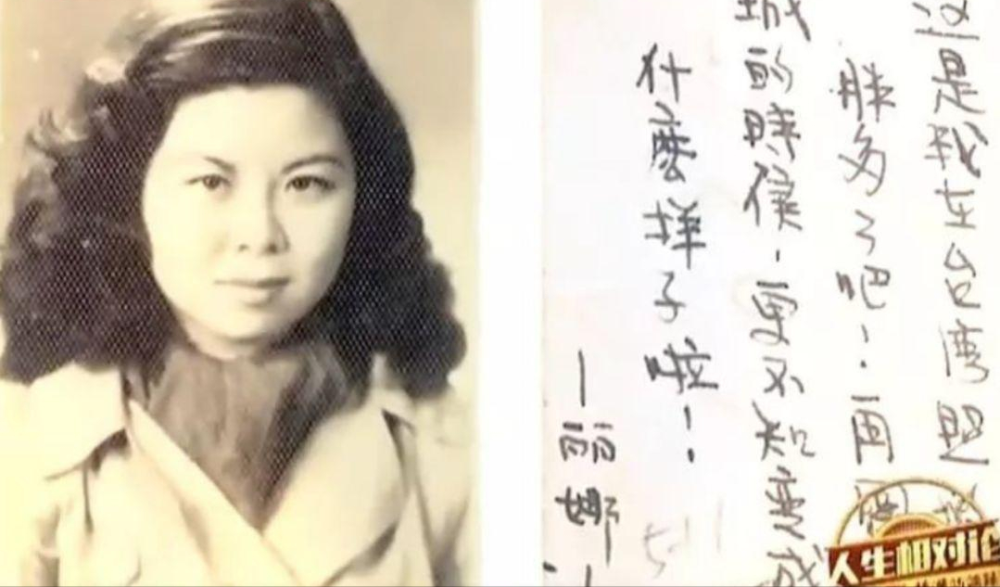 这是我在台湾照
胖多了吧！再回
城的時候，更不知变成
什麼样子啦！
—丽娜—
人生相对论